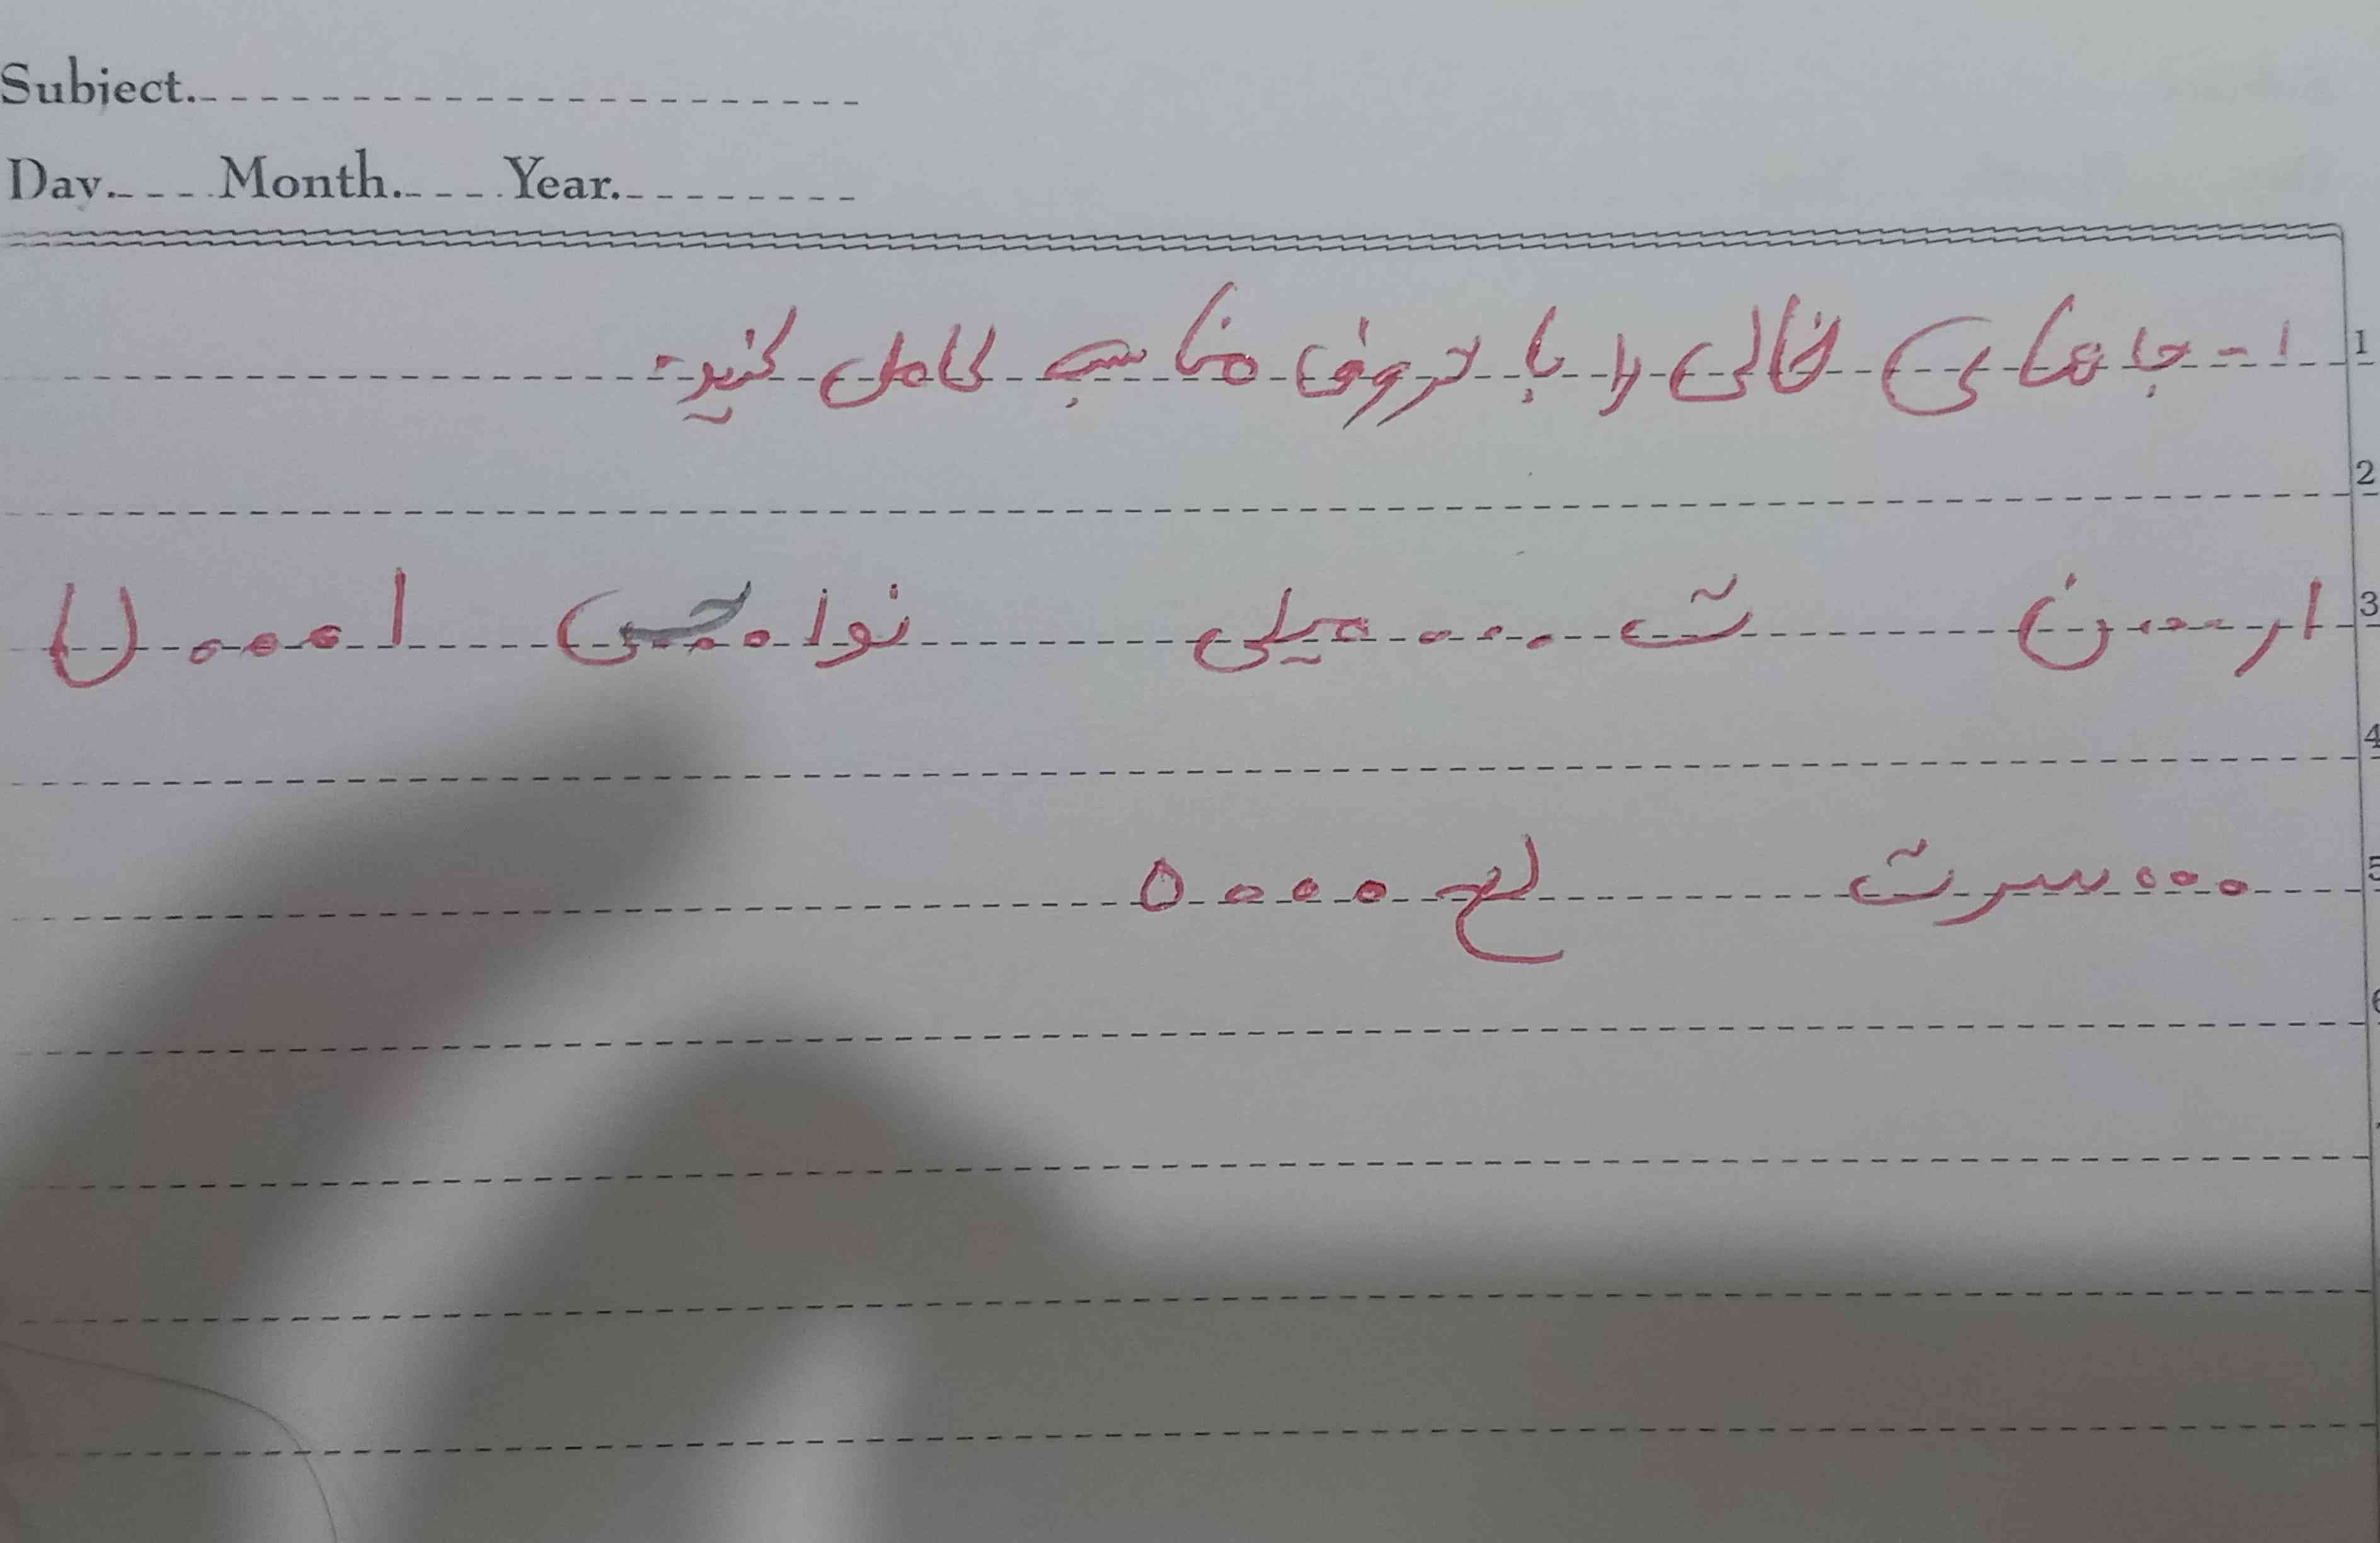 Subject.
Day. Month. Year.
1 ۱- جاهای خالی را با حروف مناسب کامل کنید.
2
3 ار...ن ت...میلی نوا...ی ا...ل
4
5 ...سرت لح...ه